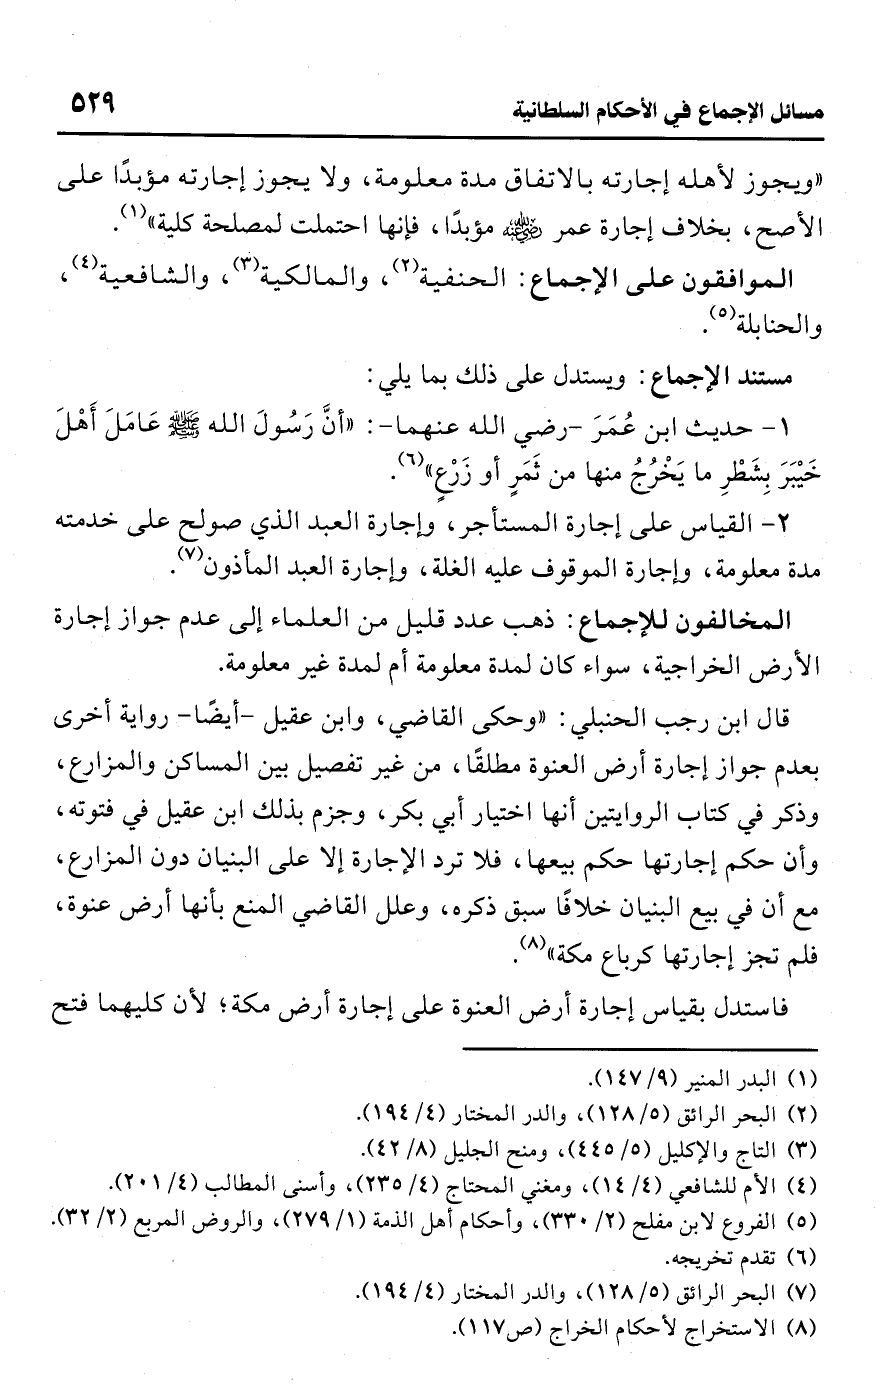 مسائل الإجماع في الأحكام السلطانية ٥٢٩
«ويجوز لأهله إجارته بالاتفاق مدة معلومة، ولا يجوز إجارته مؤبدًا على
الأصح، بخلاف إجارة عمر رضي الله عنه مؤبدًا، فإنها احتملت لمصلحة كلية»(١).
الموافقون على الإجماع: الحنفية(٢)، والمالكية(٣)، والشافعية(٤)،
والحنابلة(٥).
مستند الإجماع: ويستدل على ذلك بما يلي:
١- حديث ابن عُمَرَ -رضي الله عنهما-: «أنَّ رَسُولَ الله ﷺ عَامَلَ أَهْلَ
خَيْبَرَ بِشَطْرِ ما يَخْرُجُ منها من ثَمَرٍ أو زَرْعٍ»(٦).
٢- القياس على إجارة المستأجر، وإجارة العبد الذي صولح على خدمته
مدة معلومة، وإجارة الموقوف عليه الغلة، وإجارة العبد المأذون(٧).
المخالفون للإجماع: ذهب عدد قليل من العلماء إلى عدم جواز إجارة
الأرض الخراجية، سواء كان لمدة معلومة أم لمدة غير معلومة.
قال ابن رجب الحنبلي: «وحكى القاضي، وابن عقيل -أيضًا- رواية أخرى
بعدم جواز إجارة أرض العنوة مطلقًا، من غير تفصيل بين المساكن والمزارع،
وذكر في كتاب الروايتين أنها اختيار أبي بكر، وجزم بذلك ابن عقيل في فتوته،
وأن حكم إجارتها حكم بيعها، فلا ترد الإجارة إلا على البنيان دون المزارع،
مع أن في بيع البنيان خلافًا سبق ذكره، وعلل القاضي المنع بأنها أرض عنوة،
فلم تجز إجارتها كرباع مكة»(٨).
فاستدل بقياس إجارة أرض العنوة على إجارة أرض مكة؛ لأن كليهما فتح
(١) البدر المنير (٩/ ١٤٧).
(٢) البحر الرائق (٥/ ١٢٨)، والدر المختار (٤/ ١٩٤).
(٣) التاج والإكليل (٥/ ٤٤٥)، ومنح الجليل (٨/ ٤٢).
(٤) الأم للشافعي (٤/ ١٤)، ومغني المحتاج (٤/ ٢٣٥)، وأسنى المطالب (٤/ ٢٠١).
(٥) الفروع لابن مفلح (٢/ ٣٣٠)، وأحكام أهل الذمة (١/ ٢٧٩)، والروض المربع (٢/ ٣٢).
(٦) تقدم تخريجه.
(٧) البحر الرائق (٥/ ١٢٨)، والدر المختار (٤/ ١٩٤).
(٨) الاستخراج لأحكام الخراج (ص١١٧).